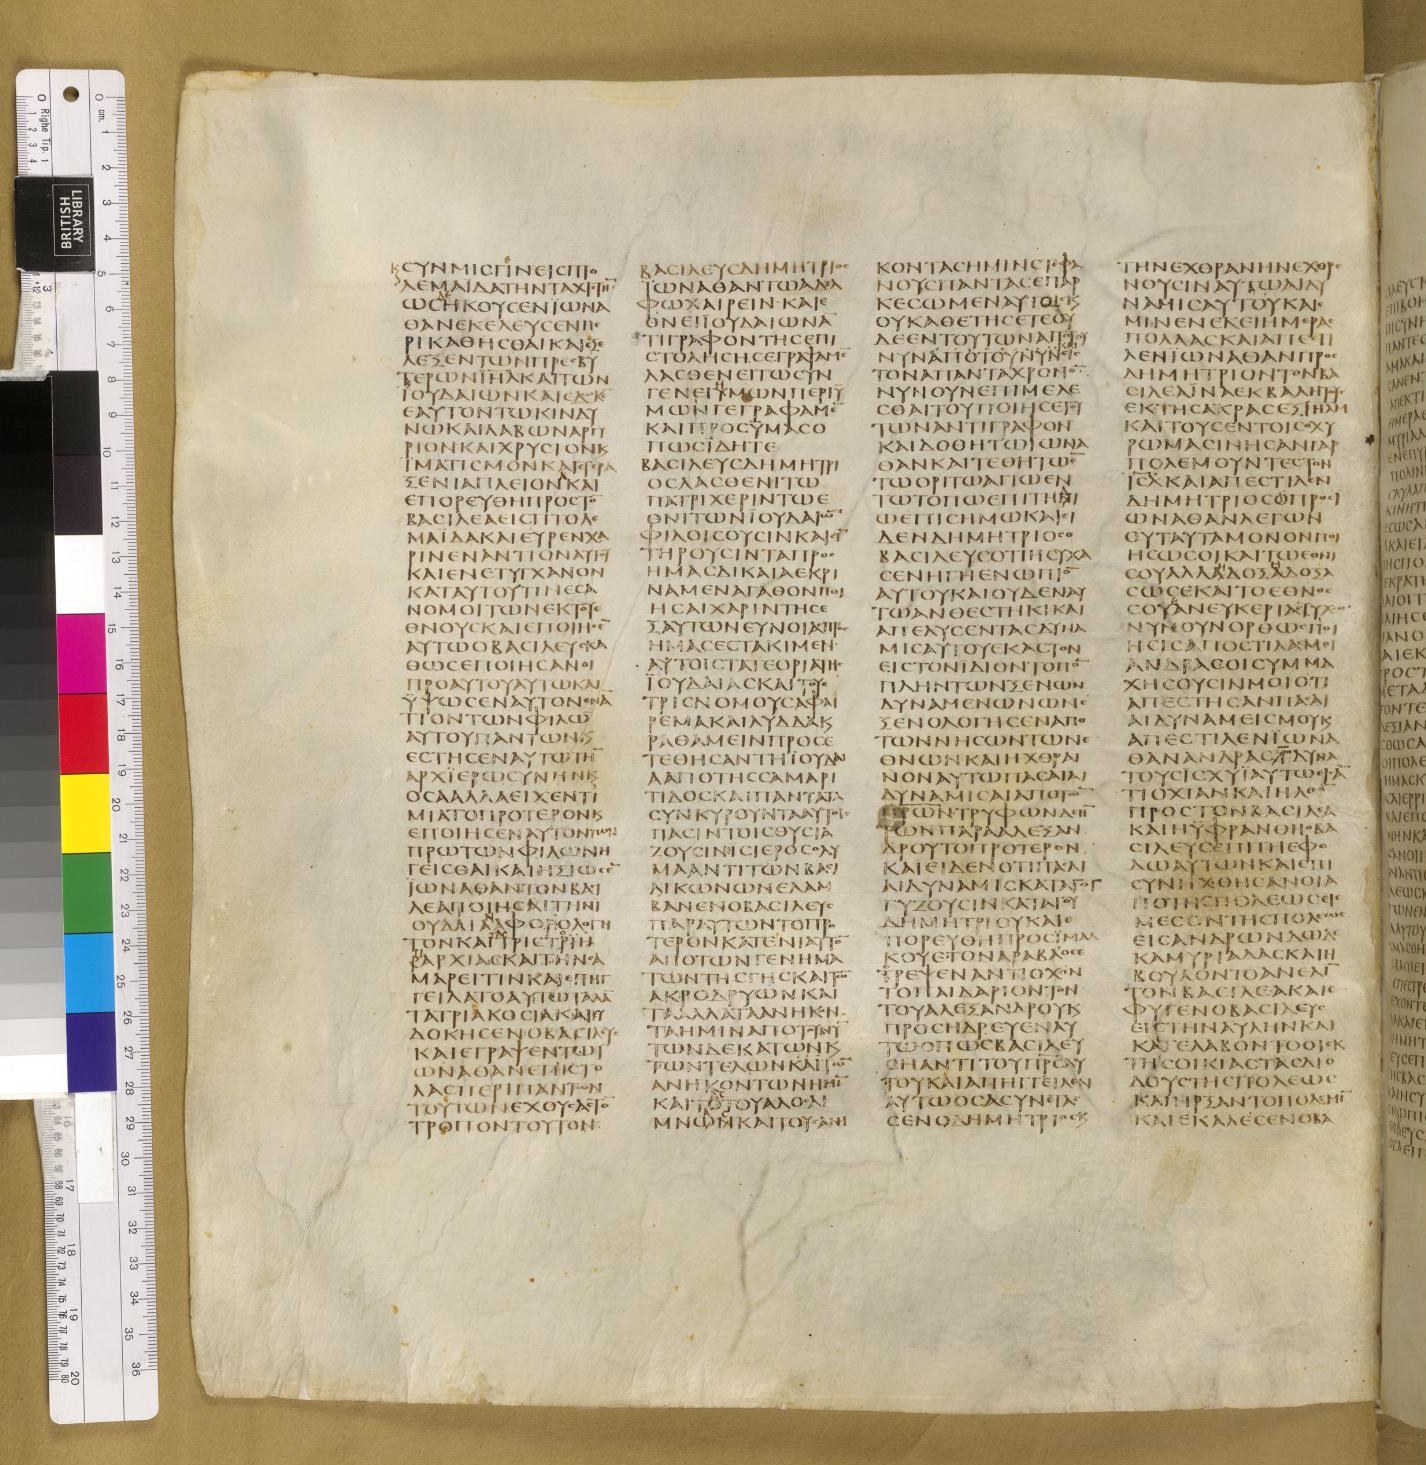 ϹΥΝΜΙϹΓΙΝΕΙϹΠΤΟ
ΛΕΜΑΪΔΑΤΗΝΤΑΧΙϹΤΗ̅
ΩϹΔΕΗΚΟΥϹΕΝΪΩΝΑ
ΘΑΝΕΚΕΛΕΥϹΕΝΠΕ
ΡΙΚΑΘΗϹΘΑΙΚΑΙΕΠΕ
ΛΕΞΕΝΤΩΝΠΡΕϹΒΥ
ΤΕΡΩΝΙΗΛΚΑΙΤΩΝ
ΪΟΥΔΑΙΩΝΚΑΙΕΔΩΚΕ̅
ΕΑΥΤΟΝΤΩΚΙΝΔΥ
ΝΩΚΑΙΛΑΒΩΝΑΡΓΥ
ΡΙΟΝΚΑΙΧΡΥϹΙΟΝΚ
ΪΜΑΤΙϹΜΟΝΚΑΙΕΤΕΡΑ
ΞΕΝΙΑΠΛΕΙΟΝΑΚΑΙ
ΕΠΟΡΕΥΘΗΠΡΟϹΤΟ̅
ΒΑϹΙΛΕΑΕΙϹΠΤΟΛΕ
ΜΑΪΔΑΚΑΙΕΥΡΕΝΧΑ
ΡΙΝΕΝΑΝΤΙΟΝΑΥΤΟΥ
ΚΑΙΕΝΕΤΥΓΧΑΝΟΝ
ΚΑΤΑΥΤΟΥΤΙΝΕϹΑ
ΝΟΜΟΙΤΩΝΕΚΤΟΥΕ
ΘΝΟΥϹΚΑΙΕΠΟΙΗϹΕ̅
ΑΥΤΩΟΒΑϹΙΛΕΥϹΚΑ
ΘΩϹΕΠΟΙΗϹΑΝΟΙ
ΠΡΟΑΥΤΟΥΑΥΤΩΚΑΙ
ΫΨΩϹΕΝΑΥΤΟΝΕΝΑ̅
ΤΙΟΝΤΩΝΦΙΛΩ̅
ΑΥΤΟΥΠΑΝΤΩΝΚ
ΕϹΤΗϹΕΝΑΥΤΩΤΗ̅
ΑΡΧΪΕΡΩϹΥΝΗΝΚ
ΟϹΑΑΛΛΑΕΙΧΕΝΤΙ
ΜΙΑΤΟΠΡΟΤΕΡΟΝΚ
ΕΠΟΙΗϹΕΝΑΥΤΟΝΤΩΝ
ΠΡΩΤΩΝΦΙΛΩΝΗ
ΓΕΙϹΘΑΙΚΑΙΗΞΙΩϹΕ̅
ΪΩΝΑΘΑΝΤΟΝΒΑϹΙ
ΛΕΑΠΟΙΗϹΑΙΤΗΝΪ
ΟΥΔΑΙΑΝΑΦΟΡΟΛΟΓΗ
ΤΟΝΚΑΙΤΑϹΤΡΙϹΤΟΠ
ΑΡΧΙΑϹΚΑΙΤΗΝϹΑ
ΜΑΡΕΙΤΙΝΚΑΙΕΠΗΓ
ΓΕΙΛΑΤΟΑΥΤΩΤΑΛΑ̅
ΤΑΤΡΙΑΚΟϹΙΑΚΑΙΗΥ
ΔΟΚΗϹΕΝΟΒΑϹΙΛΕΥϹ
ΚΑΙΕΓΡΑΨΕΝΤΩΪ
ΩΝΑΘΑΝΕΠΙϹΤΟ
ΛΑϹΠΕΡΙΠΑΝΤΩΝ
ΤΟΥΤΩΝΕΧΟΥϹΑϹΤΟ̅
ΤΡΟΠΟΝΤΟΥΤΟΝ
ΒΑϹΙΛΕΥϹΔΗΜΗΤΡΙΟϹ
ΪΩΝΑΘΑΝΤΩΑΔΕΛ
ΦΩΧΑΙΡΕΙΝΚΑΙΕ
ΘΝΕΙΪΟΥΔΑΙΩΝΑ̅
ΤΙΓΡΑΦΟΝΤΗϹΕΠΙ
ϹΤΟΛΗϹΗϹΕΓΡΑΨΑΜΕ̅
ΛΑϹΘΕΝΕΙΤΩϹΥΝ
ΓΕΝΕΙΗΜΩΝΠΕΡΙΫ
ΜΩΝΓΕΓΡΑΦΑΜΕ̅
ΚΑΙΠΡΟϹΫΜΑϹΟ
ΠΩϹΪΔΗΤΕ
ΒΑϹΙΛΕΥϹΔΗΜΗΤΡΙ
ΟϹΛΑϹΘΕΝΙΤΩ
ΠΑΤΡΙΧΕΡΙΝΤΩΕ
ΘΝΙΤΩΝΪΟΥΔΑΙΩ̅
ΦΙΛΟΙϹΟΥϹΙΝΚΑΙϹΥ̅
ΤΗΡΟΥϹΙΝΤΑΠΡΟϹ
ΗΜΑϹΔΙΚΑΙΑΕΚΡΙ
ΝΑΜΕΝΑΓΑΘΟΝΠΟΙ
ΗϹΑΙΧΑΡΙΝΤΗϹΕ
ΞΑΥΤΩΝΕΥΝΟΙΑϹΠΡΟϹ
ΗΜΑϹΕϹΤΑΚΙΜΕΝ
ΑΥΤΟΙϹΤΑΤΕΟΡΙΑΤΗϹ
ΪΟΥΔΑΙΑϹΚΑΙΤΟΥϹ
ΤΡΙϹΝΟΜΟΥϹΑΦΑΙ
ΡΕΜΑΚΑΙΛΥΔΔΑΚ
ΡΑΘΑΜΕΙΝΠΡΟϹΕ
ΤΕΘΗϹΑΝΤΗΪΟΥΔΑΙ
ΑΑΠΟΤΗϹϹΑΜΑΡΙ
ΤΙΔΟϹΚΑΙΠΑΝΤΑΤΑ
ϹΥΝΚΥΡΟΥΝΤΑΑΥΤΟΙϹ
ΠΑϹΙΝΤΟΙϹΘΥϹΙΑ
ΖΟΥϹΙΝΕΙϹΙΕΡΟϹΟΛΥ
ΜΑΑΝΤΙΤΩΝΒΑϹΙ
ΛΙΚΩΝΩΝΕΛΑΜ
ΒΑΝΕΝΟΒΑϹΙΛΕΥϹ
ΠΑΡΑΥΤΩΝΤΟΠΡΟ
ΤΕΡΟΝΚΑΤΕΝΙΑΥΤΟ̅
ΑΠΟΤΩΝΓΕΝΗΜΑ
ΤΩΝΤΗϹΓΗϹΚΑΙΤΩ̅
ΑΚΡΟΔΡΥΩΝΚΑΙ
ΤΑΑΛΛΑΤΑΑΝΗΚΟΝ
ΤΑΗΜΙΝΑΠΟΤΟΥΝΥ̅
ΤΩΝΔΕΚΑΤΩΝΚ
ΤΩΝΤΕΛΩΝΚΑΙΤΩ̅
ΑΝΗΚΟΝΤΩΝΗΜΙ̅
ΚΑΙΤΟΥϹΤΟΥΑΛΟϹΛΙ
ΜΝΑϹΚΑΙΤΟΥϹΑΝΗ
ΚΟΝΤΑϹΗΜΙΝϹΤΕΦΑ
ΝΟΥϹΠΑΝΤΑϹΕΠΑΡ
ΚΕϹΩΜΕΝΑΥΤΟΙϹΚ
ΟΥΚΑΘΕΤΗϹΕΤΕΟΥ
ΔΕΕΝΤΟΥΤΩΝΑΠΟΤΟΥ
ΝΥΝΑΠΟΤΟΥΝΥΝΕΙϹ
ΤΟΝΑΠΑΝΤΑΧΡΟΝΟ̅
ΝΥΝΟΥΝΕΠΙΜΕΛΕ
ϹΘΑΙΤΟΥΠΟΙΗϹΕΤΕ
ΤΩΝΑΝΤΙΓΡΑΦΟΝ
ΚΑΙΔΟΘΗΤΩΪΩΝΑ
ΘΑΝΚΑΙΤΕΘΗΤΩΕ̅
ΤΩΟΡΙΤΩΑΓΙΩΕΝ
ΤΩΤΟΠΩΕΠΙΤΗΔΙ
ΩΕΠΙϹΗΜΩΚΑΙΕΙ
ΔΕΝΔΗΜΗΤΡΙΟϹΟ
ΒΑϹΙΛΕΥϹΟΤΙΗϹΥΧΑ
ϹΕΝΗΓΗΕΝΩΠΙΟ̅
ΑΥΤΟΥΚΑΙΟΥΔΕΝΑΥ
ΤΩΑΝΘΕϹΤΗΚΙΚΑΙ
ΑΠΕΛΥϹΕΝΤΑϹΔΥΝΑ
ΜΙϹΑΥΤΟΥΕΚΑϹΤΟΝ
ΕΙϹΤΟΝΪΔΙΟΝΤΟΠΟ̅
ΠΛΗΝΤΩΝΞΕΝΩΝ
ΔΥΝΑΜΕΩΝΩΝΕ
ΞΕΝΟΛΟΓΗϹΕΝΑΠΟ
ΤΩΝΝΗϹΩΝΤΩΝΕ
ΘΝΩΝΚΑΙΗΧΘΡΑΙ
ΝΟΝΑΥΤΩΠΑϹΑΙΑΙ
ΔΥΝΑΜΙϹΑΙΑΠΟΤΩ̅
ΠΡΩΝΤΡΥΦΩΝΔΕΗ̅
ΤΩΝΠΑΡΑΑΛΕΞΑΝ
ΔΡΟΥΤΟΠΡΟΤΕΡΟΝ
ΚΑΙΕΙΔΕΝΟΤΙΠΑϹΑΙ
ΑΙΔΥΝΑΜΙϹΚΑΤΑΓΟΓ
ΓΥΖΟΥϹΙΝΚΑΤΑΤΟΥ
ΔΗΜΗΤΡΙΟΥΚΑΙΕ
ΠΟΡΕΥΘΗΠΡΟϹΪΜΑΛ
ΚΟΥΕΤΟΝΑΡΑΒΑΟϹΕ
ΤΡΕΨΕΝΑΝΤΙΟΧΟΝ
ΤΟΠΑΙΔΑΡΙΟΝΤΟΝ
ΤΟΥΑΛΕΞΑΝΔΡΟΥΚ
ΠΡΟϹΗΔΡΕΥΕΝΑΥ
ΤΩΟΠΩϹΒΑϹΙΛΕΥ
ϹΗΑΝΤΙΤΟΥΠΡϹΑΥ
ΤΟΥΚΑΙΑΠΗΓΓΕΙΛΕΝ
ΑΥΤΩΟϹΑϹΥΝΕΤΕ
ϹΕΝΟΔΗΜΗΤΡΙΟϹΚ
ΤΗΝΕΧΘΡΑΝΗΝΕΧΘΡΕ
ΝΟΥϹΙΝΑΥΤΩΑΙΔΥ
ΝΑΜΙϹΑΥΤΟΥΚΑΙΕ
ΜΙΝΕΝΕΚΕΙΗΜΕΡΑϹ
ΠΟΛΛΑϹΚΑΙΑΠΕϹΤΙ
ΛΕΝΪΩΝΑΘΑΝΠΡΟϹ
ΔΗΜΗΤΡΙΟΝΤΟΝΒΑ
ϹΙΛΕΑΪΝΑΕΚΒΑΛΗΤΟΥϹ
ΕΚΤΗϹΑΚΡΑϹΕΞΙΗΛΜ
ΚΑΙΤΟΥϹΕΝΤΟΙϹΟΧΥ
ΡΩΜΑϹΙΝΗϹΑΝΓΑΡ
ΠΟΛΕΜΟΥΝΤΕϹΤΟΝ
ΙϹΛΚΑΙΑΠΕϹΤΙΛΕΝ
ΔΗΜΗΤΡΙΟϹΠΡΟϹΙ
ΩΝΑΘΑΝΛΕΓΩΝ
ΟΥΤΑΥΤΑΜΟΝΟΝΠΟΙ
ΗϹΩϹΟΙΚΑΙΤΩΕΘΝΙ
ϹΟΥΑΛΛΑΔΟΞΑϹΩ
ϹΩϹΕΚΑΙΤΟΕΘΝΟϹ
ϹΟΥΑΝΕΥΚΕΡΙΑϹΤΥΧΩ
ΝΥΝΟΥΝΟΡΘΩϹΠΟΙ
ΗϹΙϹΑΠΟϹΤΙΛΑϹΜΟΙ
ΑΝΔΡΑϹΟΙϹΥΜΜΑ
ΧΗϹΟΥϹΙΝΜΟΙΟΤΙ
ΑΠΕϹΤΗϹΑΝΠΑϹΑΙ
ΑΙΔΥΝΑΜΕΙϹΜΟΥΚ
ΑΠΕϹΤΙΛΕΝΪΩΝΑ
ΘΑΝΑΝΔΡΑϹΓΔΥΝΑ
ΤΟΥϹΙϹΧΥΪΑΥΤΩΕΙϹΑ̅
ΤΙΟΧΙΑΝΚΑΙΗΛΘΟ̅
ΠΡΟϹΤΟΝΒΑϹΙΛΕΑ
ΚΑΙΗΫΦΡΑΝΘΗΟΒΑ
ϹΙΛΕΥϹΕΠΙΤΗΕΦΟ
ΔΩΑΥΤΩΝΚΑΙΕΠΙ
ϹΥΝΗΧΘΗϹΑΝΟΙΑ
ΠΟΤΗϹΠΟΛΕΩϹΕΙϹ
ΜΕϹΟΝΤΗϹΠΟΛΕΩϹ
ΕΙϹΑΝΔΡΩΝΔΩΔΕ
ΚΑΜΥΡΙΑΔΑϹΚΑΙΗ
ΒΟΥΛΟΝΤΟΑΝΕΛΙ̅
ΤΟΝΒΑϹΙΛΕΑΚΑΙΕ
ΦΥΓΕΝΟΒΑϹΙΛΕΥϹ
ΕΙϹΤΗΝΑΥΛΗΝΚΑΙ
ΚΑΤΕΛΑΒΟΝΤΟΟΙΕΚ
ΤΗϹΟΙΚΙΑϹΤΑϹΔΙΟ
ΔΟΥϹΤΗϹΠΟΛΕΩϹ
ΚΑΙΗΡΞΑΝΤΟΠΟΛΕΜΙ̅
ΚΑΙΕΚΑΛΕϹΕΝΟΒΑ